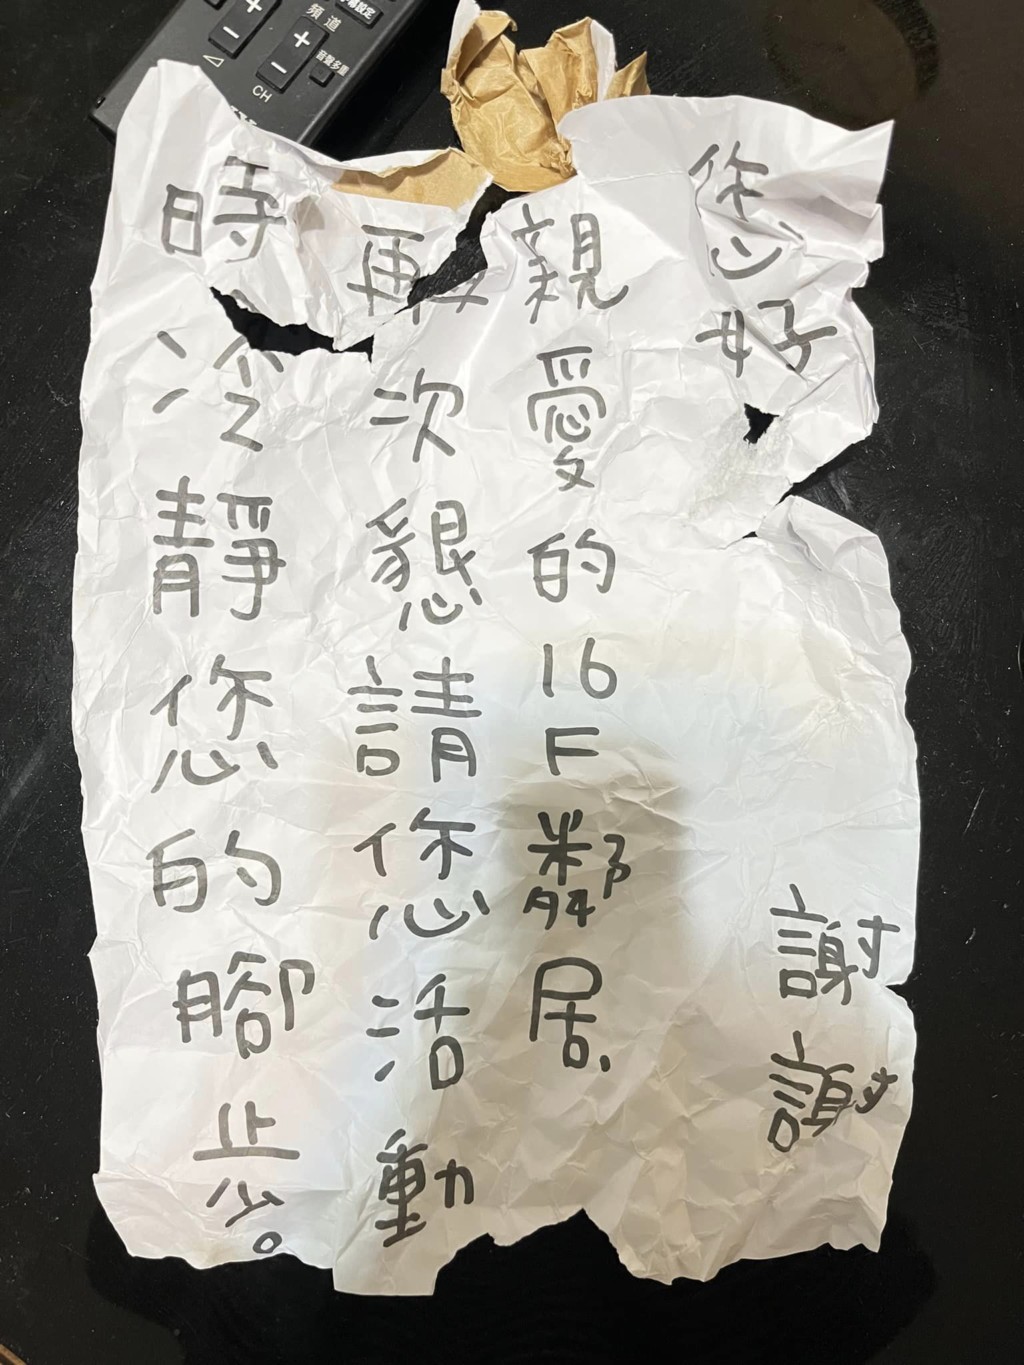 您好
親愛的16F鄰居、
再次懇請您活動
時冷靜您的腳步。
謝謝
頻道
音聲多重
+
-
+
-
CH